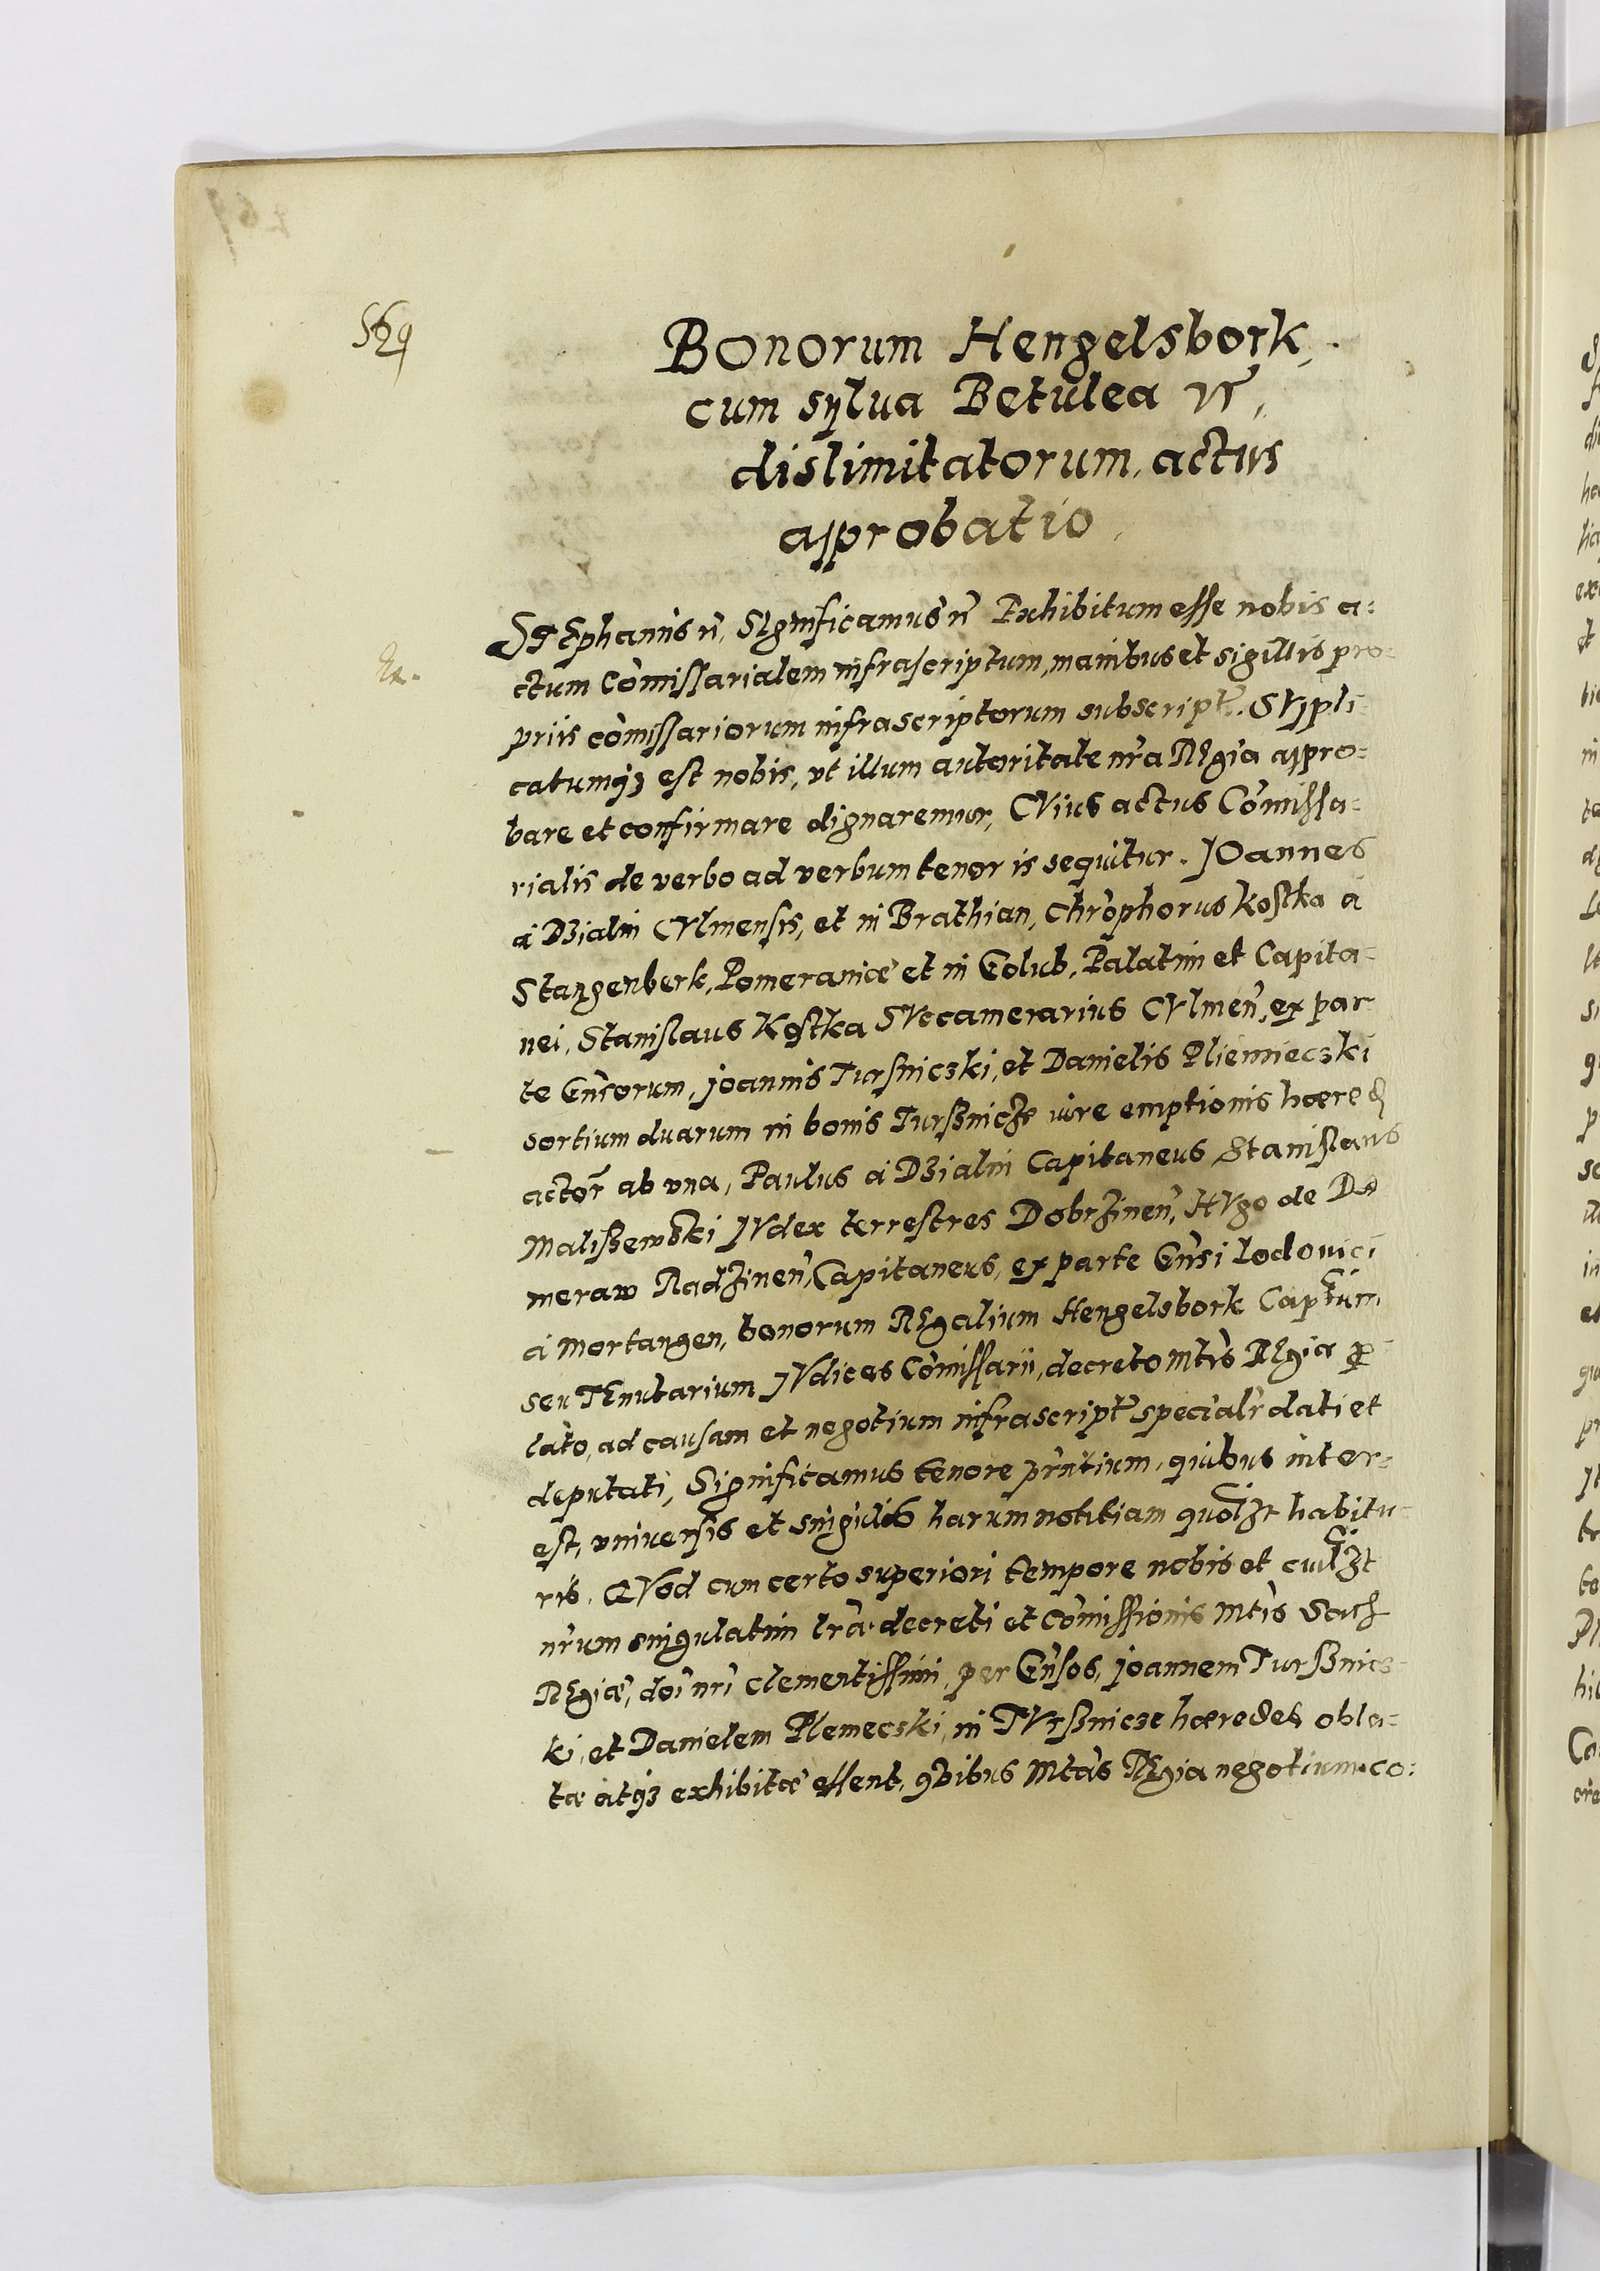 529
Bonorum Hengelsbork,
cum sylua Betulea
dislimitatorum, actus
approbatio.
Stephanus n̄, Significamus n̄ Exhibitum esse nobis a=
ctum Com̄issarialem infrascriptum, manibus et sigillis pro=
priis com̄issariorum infrascriptorum subscript. Suppli=
catumq3 est nobis, vt illum autoritate nr̄a Regia appro=
bare et confirmare dignaremur, Cuius actus Com̄issa=
rialis de verbo ad verbum tenor is sequitur. Joannes
à Dzialin Culmensis, et in Brathian, Chr̄ophorus Kostka à
Stangenberk, Pomeraniæ et in Golub, Palatini et Capita=
nei, Stanislaus Kostka Succamerarius Culmen̄, ex par
te Gn̄sorum, Joannis Tursniczki, et Danielis Pliemieczki
sortium duarum in bonis Turßnicze iure emptionis hæred
actor̄ ab vna, Paulus à Dzialin Capitaneus Stanislaus
Malißewski Judex terrestres Dobrzinen̄, Hugo de Da
meraw Radzinen̄, Capitaneus, ex parte Gn̄si Lodouici
à Mortangen, bonorum Regalium Hengelsbork Captum,
seu Tenutarium Judices Com̄issarii, decreto Mtis Regiæ
lato, ad causam et negotium infrascript specialr̄ dati et
deputati, Significamus tenore pr̄ntium, quibus inter=
est, vniuersis et singulis harum notitiam quolzt habitu=
ris. Quod cum certo superiori tempore nobis et cuilzt
nr̄um singulatim lr̄æ decreti et Com̄issionis Mtis Sacr
Regiæ, dn̄i nr̄i clementissimi, per Gn̄sos, Joannem Turßnicz=
ki, et Danielem Plemecski, in Turßnicze hæredes obla=
tæ atq3 exhibitæ essent, quibus Mtas Regia negotium co=